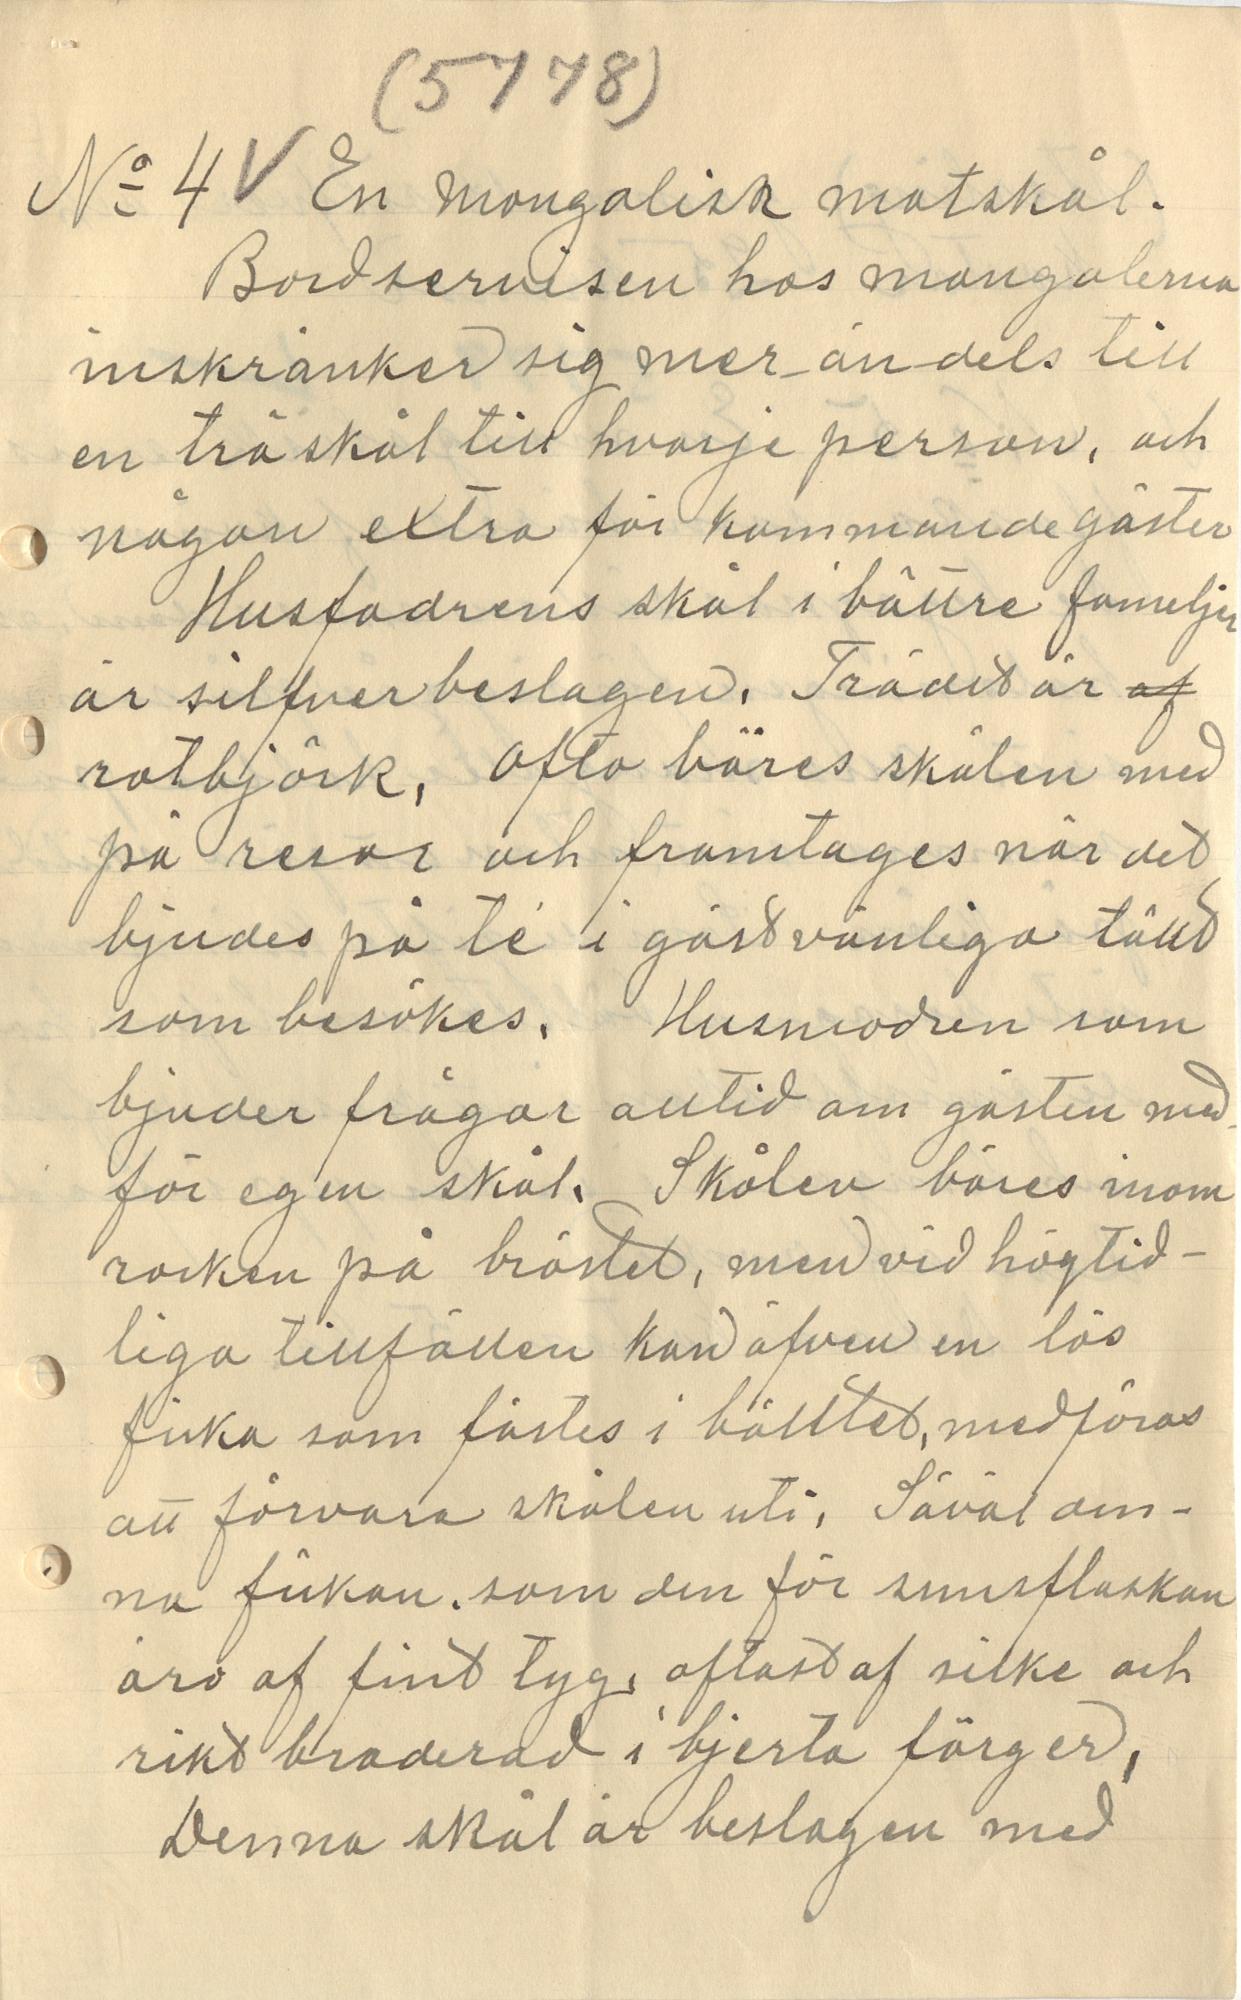 (5778)
No 4 V En mongolisk matskål.
Bordservisen hos mongolerna
inskränker sig mer-än-dels till
en träskål till hvarje person, och
någon extra för kommande gäster
Husfadrens skål i bättre fameljer
är silfverbeslagen. Trädet är af
rotbjörk, ofta bäres skålen med
på resor och framtages när det
bjudes på té i gästvänliga tält
som besökes. Husmodren som
bjuder frågar alltid om gästen med-
för egen skål. Skålen bäres inom
rocken på bröstet, men vid högtid-
liga tillfällen kan äfven en lös
ficka som fästes i bältet, medföras
att förvara skålen uti. Såväl den-
na fickan. som den för snusflaskan
äro af fint tyg, oftast af silke och
rikt braderad i bjerta färger,
Denna skål är beslagen med